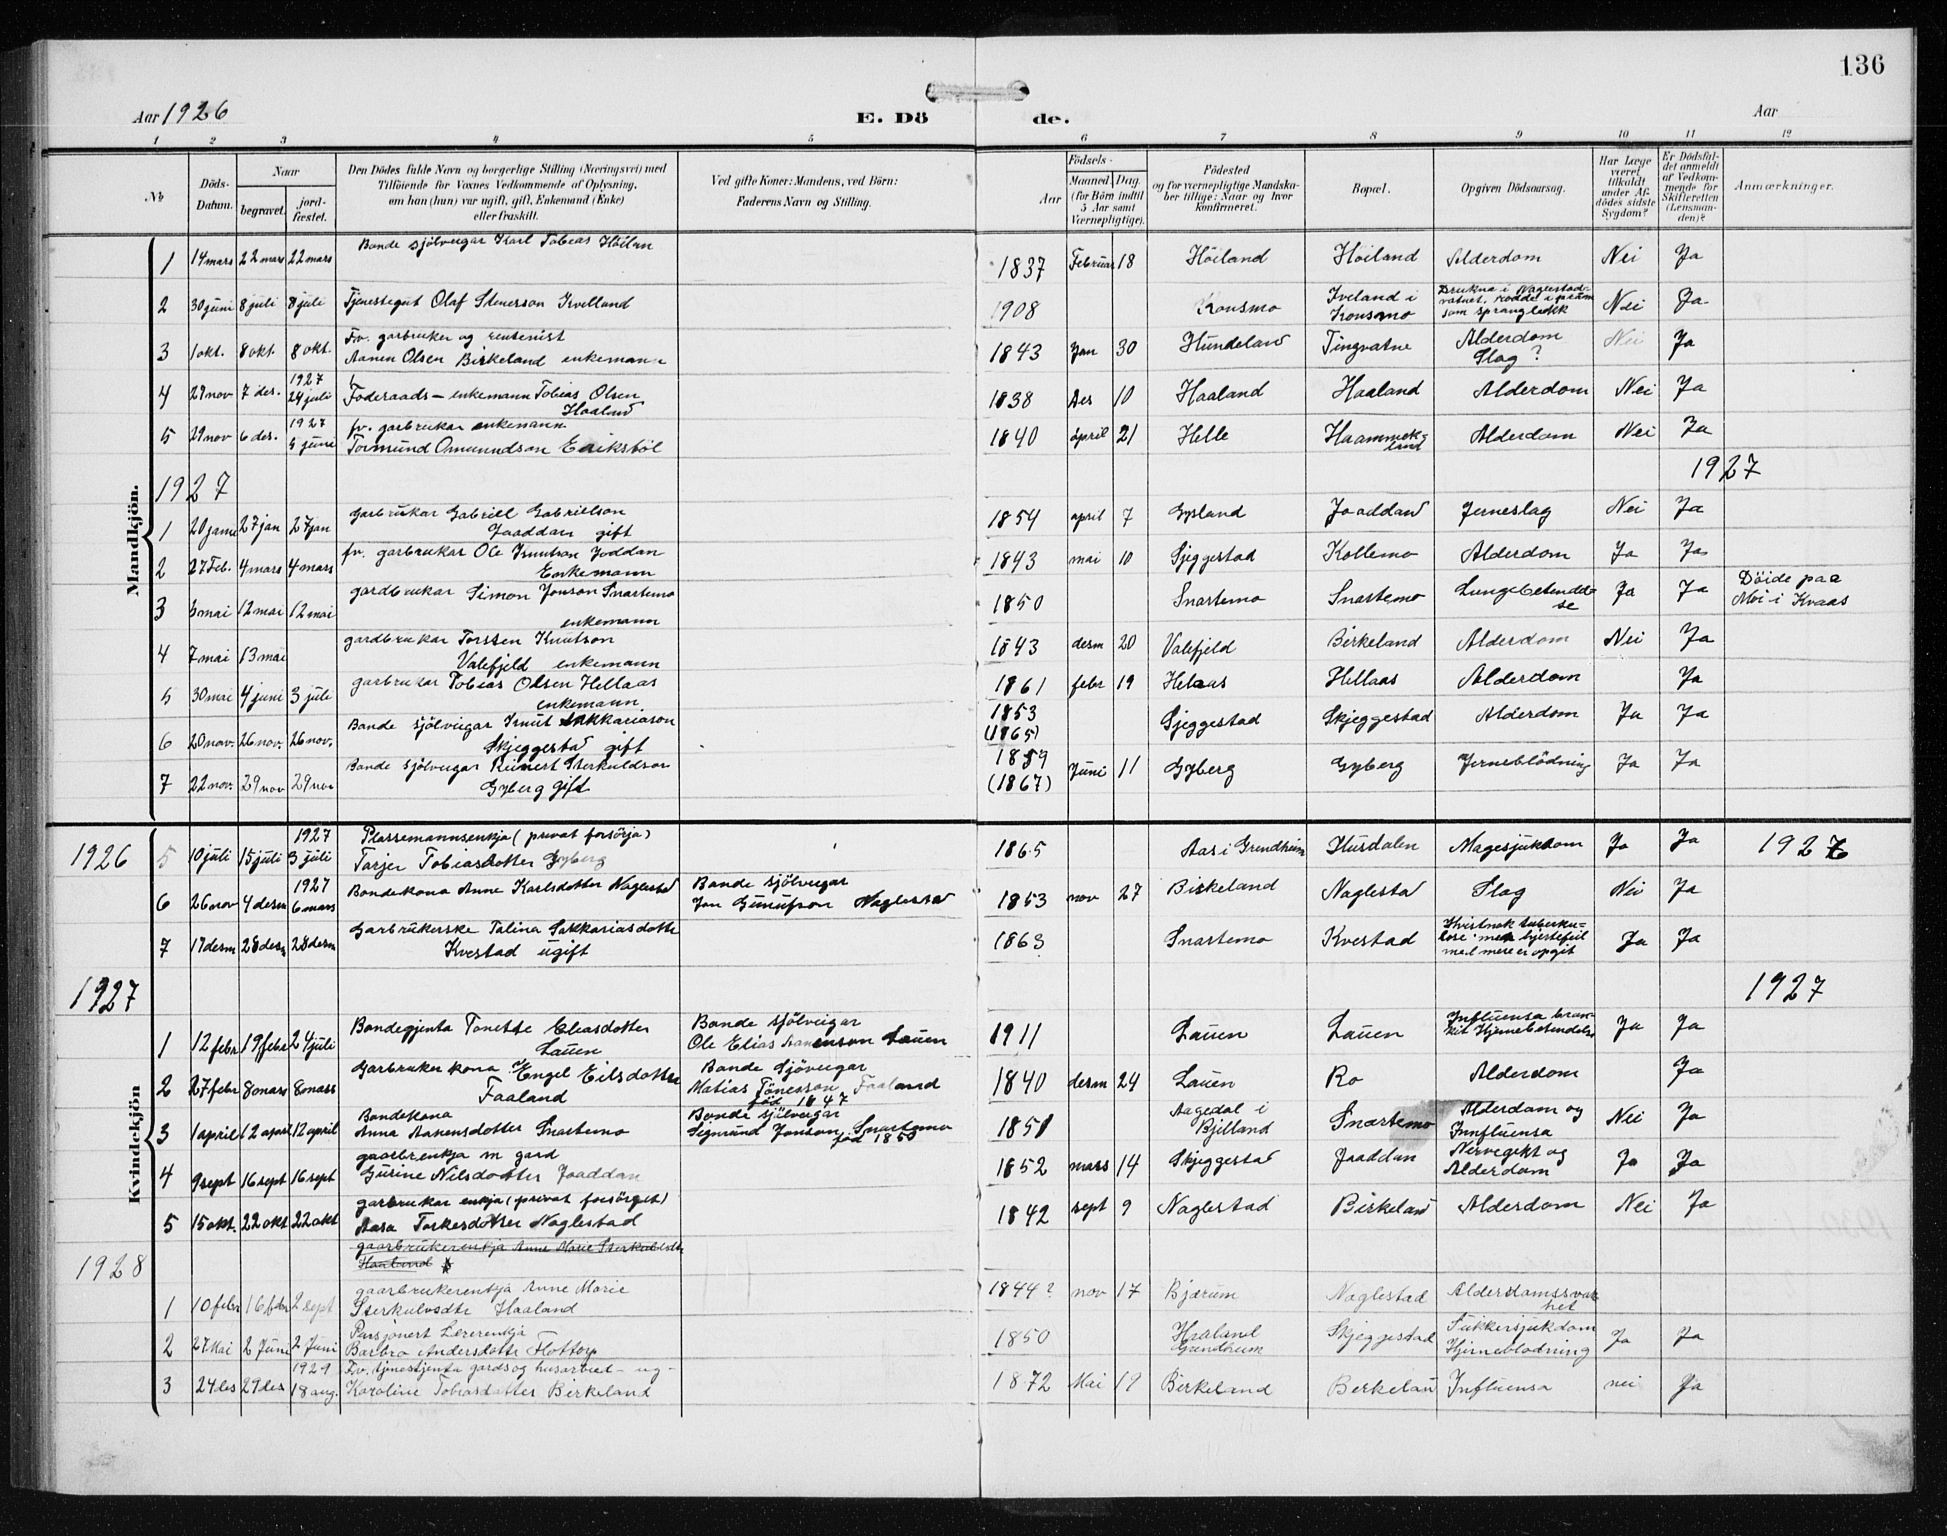 136
Aar 1926 E. Döde. Aar
1 2 3 4 5 6 7 8 9 10 11 12
No. Döds-Datum. Naar begravet. jordfæstet. Den Dödes fulde Navn og borgerlige Stilling (Næringsvei) med Tilföiende for Voxnes Vedkommende af Oplysning, om han (hun) var ugift, gift, Enkemand (Enke) eller fraskilt. Ved gifte Koner: Mandens, ved Börn: Faderens Navn og Stilling. Födsels- Aar Maaned Dag. (for Börn indtil 5 Aar samt Værnepligtige). Födested og for værnepligtige Mandskaber tillige: Naar og hvor konfirmeret. Bopæl. Opgiven Dödsaarsag. Har Læge været tilkaldt under Afdödes sidste Sygdom? Er Dödsfaldet anmeldt af Vedkommende for Skifteretten (Lensmanden)? Anmærkninger.
Mandkjön.
1 14 mars 22 mars 22 mars Bonde sjölveigar Karl Tobias Höilan 1837 Februar 18 Höiland Höiland Alderdom Nei Ja
2 30 juni 8 juli 8 juli Tjenestegut Olaf Stenerson Kvelland 1908 Konsmo Iveland i Konsmo Drukna i Naglestadvatnet, rodde i pram som sprang lekk Nei Ja
3 1 okt. 8 okt. 8 okt. Fv. garbruker og rentenist Aanen Olsen Birkeland enkemann 1843 Jan 30 Hundeland Tingvatne Alderdom Slag? Nei Ja
4 29 nov 7 des. 1927 24 juli Foderaads- enkemann Tobias Olsen Haaland 1838 Des 10 Haaland Haaland Alderdom Nei Ja
5 29 nov 6 des. 1927 5 juni fv. garbrukar enkemann Tormund Omundson Eriksböl 1840 april 21 Helle Haammekland Alderdom Nei Ja
1927 1927
1 20 janu 27 jan 27 jan Garbrukar Gabriell Gabrielson Joaddan gift 1854 april 7 Gysland Joaddan Jerneslag Nei Ja
2 27 Feb. 4 mars 4 mars fv. garbrukar Ole Knutson Joddan Enkemann 1843 mai 10 Sjeggestad Kollemo Alderdom Ja Ja
3 3 mai 12 mai 12 mai gardbrukar Simon Jonson Snartemo enkemann 1850 Snartemo Snartemo Lungebetendelse Ja Ja Döide paa Moi i Kvaas
4 7 mai 13 mai gardbrukar Torsten Knutson Valefjeld enkemann 1843 desm 20 Valefjeld Birkeland Alderdom Nei Ja
5 30 mai 4 juni 3 juli garbrukar Tobias Olsen Hellaas enkemann 1861 febr 19 Helaas Hellaas Alderdom Ja
6 20 nov. 26 nov. 26 nov. Bande sjölveigar Knut Sakkariason Skjeggestad gift 1853 (1865) Sjeggestad Skjeggestad Alderdom Ja Ja
7 22 nov. 29 nov 29 nov Bande sjölveigar Reinert Sterkuldson Gyberg gift 1859 (1867) Juni 11 Gyberg Gyberg Jerneblödning Ja Ja
Kvindekjön
1926 5 10 juli 15 juli 1927 3 juli Plassemannsenkja (privat forsörja) Tarjer Tobiasdotter Gyberg 1865 Aas i Grendheim Husdalen Magesjukdom Ja Ja 1926
6 26 nov 4 desm 1927 6 mars Bondekona Anne Karlsdotter Naglestad Bande sjölveigar Jon Gunufson Naglestad 1853 nov 27 Birkeland Naglestad Slag Nei Ja
7 17 desm 28 desm 28 desm Garbrukerske Talina Sakkariasdotter Kvestad ugift 1863 Snartemo Kvestad tuberkulose men hjertefeil med mere er opgit Ja Ja
1927 1927
1 12 febr 19 febr 24 juli Bondegjenta Tonette Eliasdotter Lauen Bande sjölveigar Ole Elias Lauen 1911 Lauen Lauen Influensa Hjernebetendelse Ja Ja
2 27 febr 8 mars 8 mars Garbruker kona Engel Eilsdotter Faaland Bande Sjöveigar Matias Tönesson Faaland föd 1847 1840 desm 24 Lauen Ro Alderdom Ja
3 1 april 12 april 12 april Bondekona Anna Aanensdotter Snartemo Bonde sjölveigar Sigmund Jonson Snartemo föd 1850 1851 Aagedal i Bjelland Snartemo Alderdom og Innfluensa Nei Ja
4 9 sept 16 sept 16 sept gaarbrenkja m gard Gurine Nilsdotter Joaddan 1852 mars 14 Skjeggestad Joaddan Nervegikt og Alderdom Ja Ja
5 15 okt. 22 okt 22 okt garbrukar enkja (privat forsörget) Aasa Torkesdotter Naglestad 1842 sept 9 Naglestad Birkeland Alderdom Nei Ja
gaarbrukerenkja Anne Marie Sterkulsdtr Haaland
1928
1 10 febr 16 febr 2 sept gaarbrukerenkja Anne Marie Sterkulvsdtr Haaland 1844? nov 17 Bjærum Naglestad Alderdomssvakhet
2 27 Mai 2 Juni 2 Juni Pensjonert Lærerenkja Barbro Andersdotter Flottorp 1850 Haaland Grendheim Skjeggestad Sukkersjukdom Hjerneblodning Ja Ja
3 24 des 29 des 1929 18 aug. Fv. tjenestjenta gards og husarbeid - ug - Karoline Tobiasdotter Birkeland 1872 Mai 19 Birkeland Berkelan Influensa nei Ja